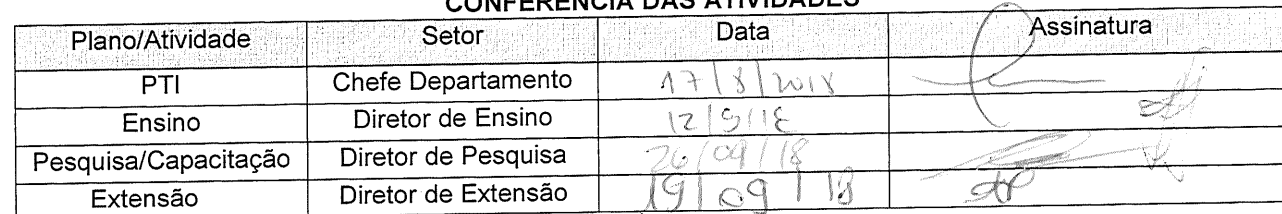 CONFERÊNCIA DAS ATIVIDADES
Plano/Atividade Setor Data Assinatura
PTI Chefe Departamento 17/8/2018
Ensino Diretor de Ensino 12/9/18
Pesquisa/Capacitação Diretor de Pesquisa 26/09/18
Extensão Diretor de Extensão 19/09/18